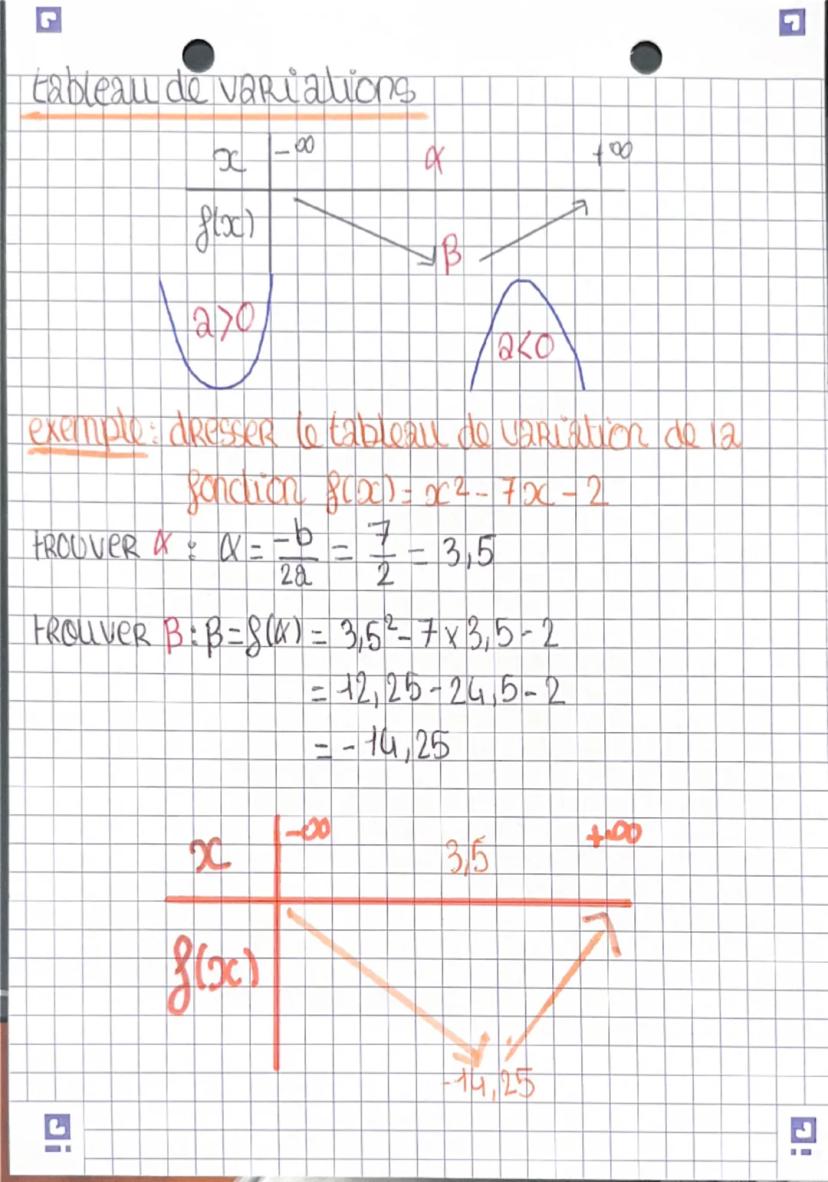 tableau de variations
x -∞ α +∞
f(x) β
a>0 a<0
exemple: dresser le tableau de variation de la
fonction f(x)=x²-7x-2
trouver α : α = -b/2a = 7/2 = 3,5
trouver β : β=f(α) = 3,5²-7×3,5-2
= 12,25-24,5-2
= -14,25
x -∞ 3,5 +∞
f(x)
-14,25